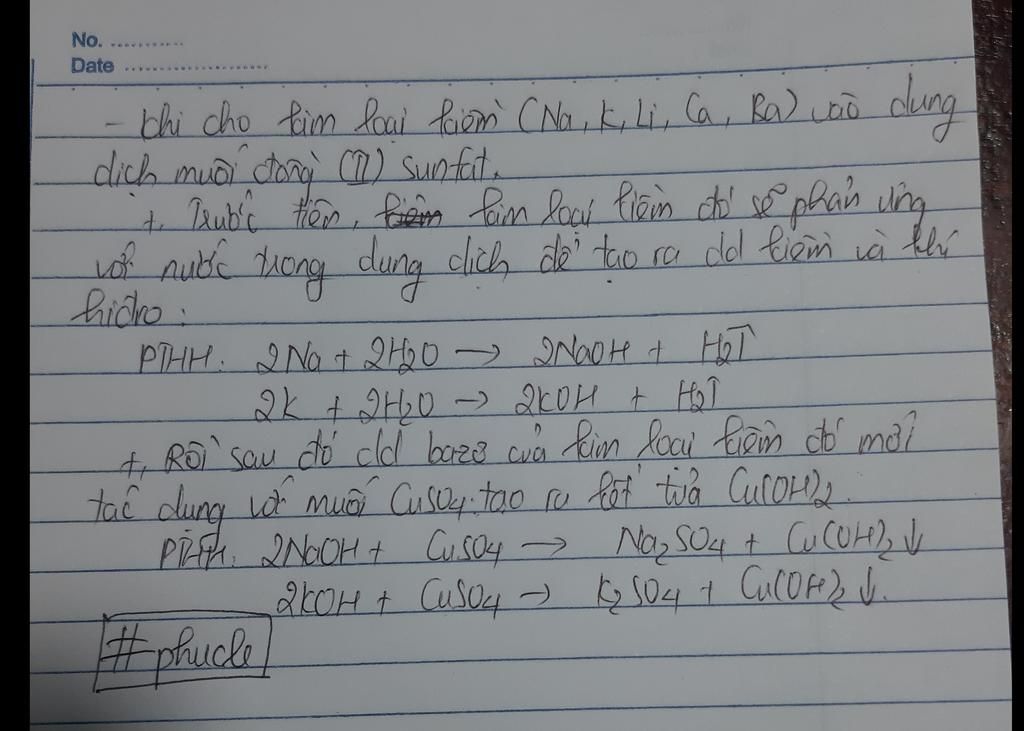 No. ............
Date ........................
- Khi cho kim loại kiềm (Na, K, Li, Ca, Ba) vào dung
dịch muối đồng (II) sunfat.
+, Trước tiên, kiềm kim loại kiềm đó sẽ phản ứng
với nước trong dung dịch để tạo ra dd kiềm và khí
hidro:
PTHH: 2Na + 2H2O → 2NaOH + H2↑
2K + 2H2O → 2KOH + H2↑
+, Rồi sau đó dd bazơ của kim loại kiềm đó mới
tác dụng với muối CuSO4 tạo ra kết tủa Cu(OH)2.
PTHH: 2NaOH + CuSO4 → Na2SO4 + Cu(OH)2↓
2KOH + CuSO4 → K2SO4 + Cu(OH)2↓.
#phucle